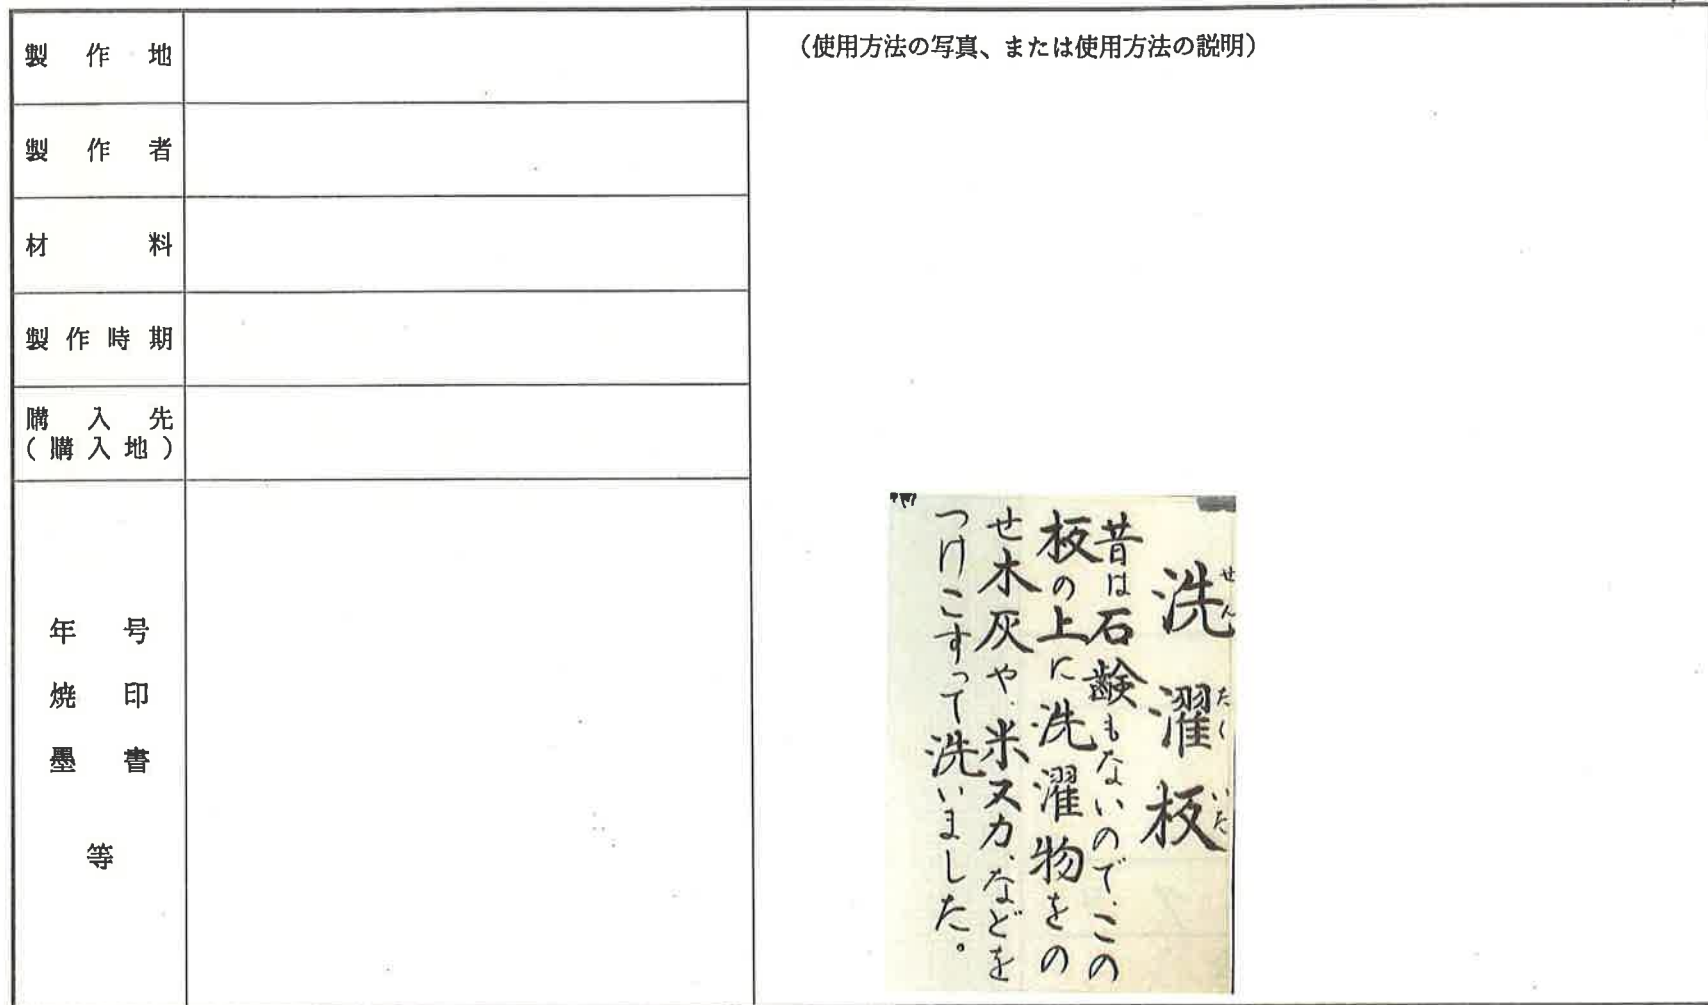 製作地
製作者
材料
製作時期
購入先
(購入地)
年号
焼印
墨書
等
(使用方法の写真、または使用方法の説明)
洗濯板
せんたくいた
昔は石鹸もないので、この
板の上に洗濯物をの
せ木灰や、米ヌカ、などを
つけこすって洗いました。